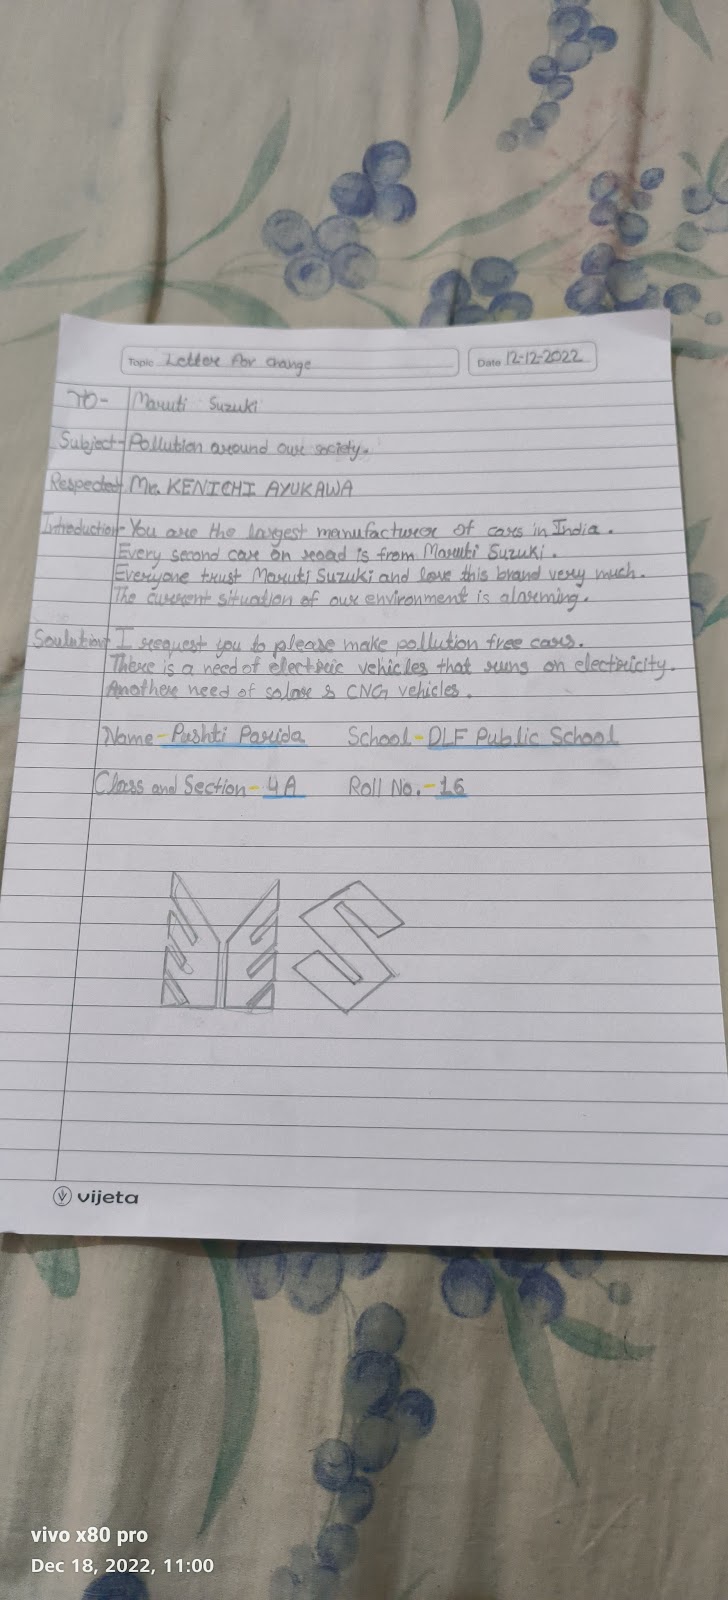 Topic Letter for change
Date 12-12-2022
To- Maruti Suzuki
Subject- Pollution around our society.
Respected Mr. KENICHI AYUKAWA
Introduction- You are the largest manufacturer of cars in India.
Every second car on road is from Maruti Suzuki.
Everyone trust Maruti Suzuki and love this brand very much.
The current situation of our environment is alarming.
Soulution- I request you to please make pollution free cars.
There is a need of electric vehicles that runs on electricity.
Another need of solar & CNG vehicles.
Name- Pushti Parida School- DLF Public School
Class and Section- 4A Roll No.- 16
MS
vijeta
vivo x80 pro
Dec 18, 2022, 11:00